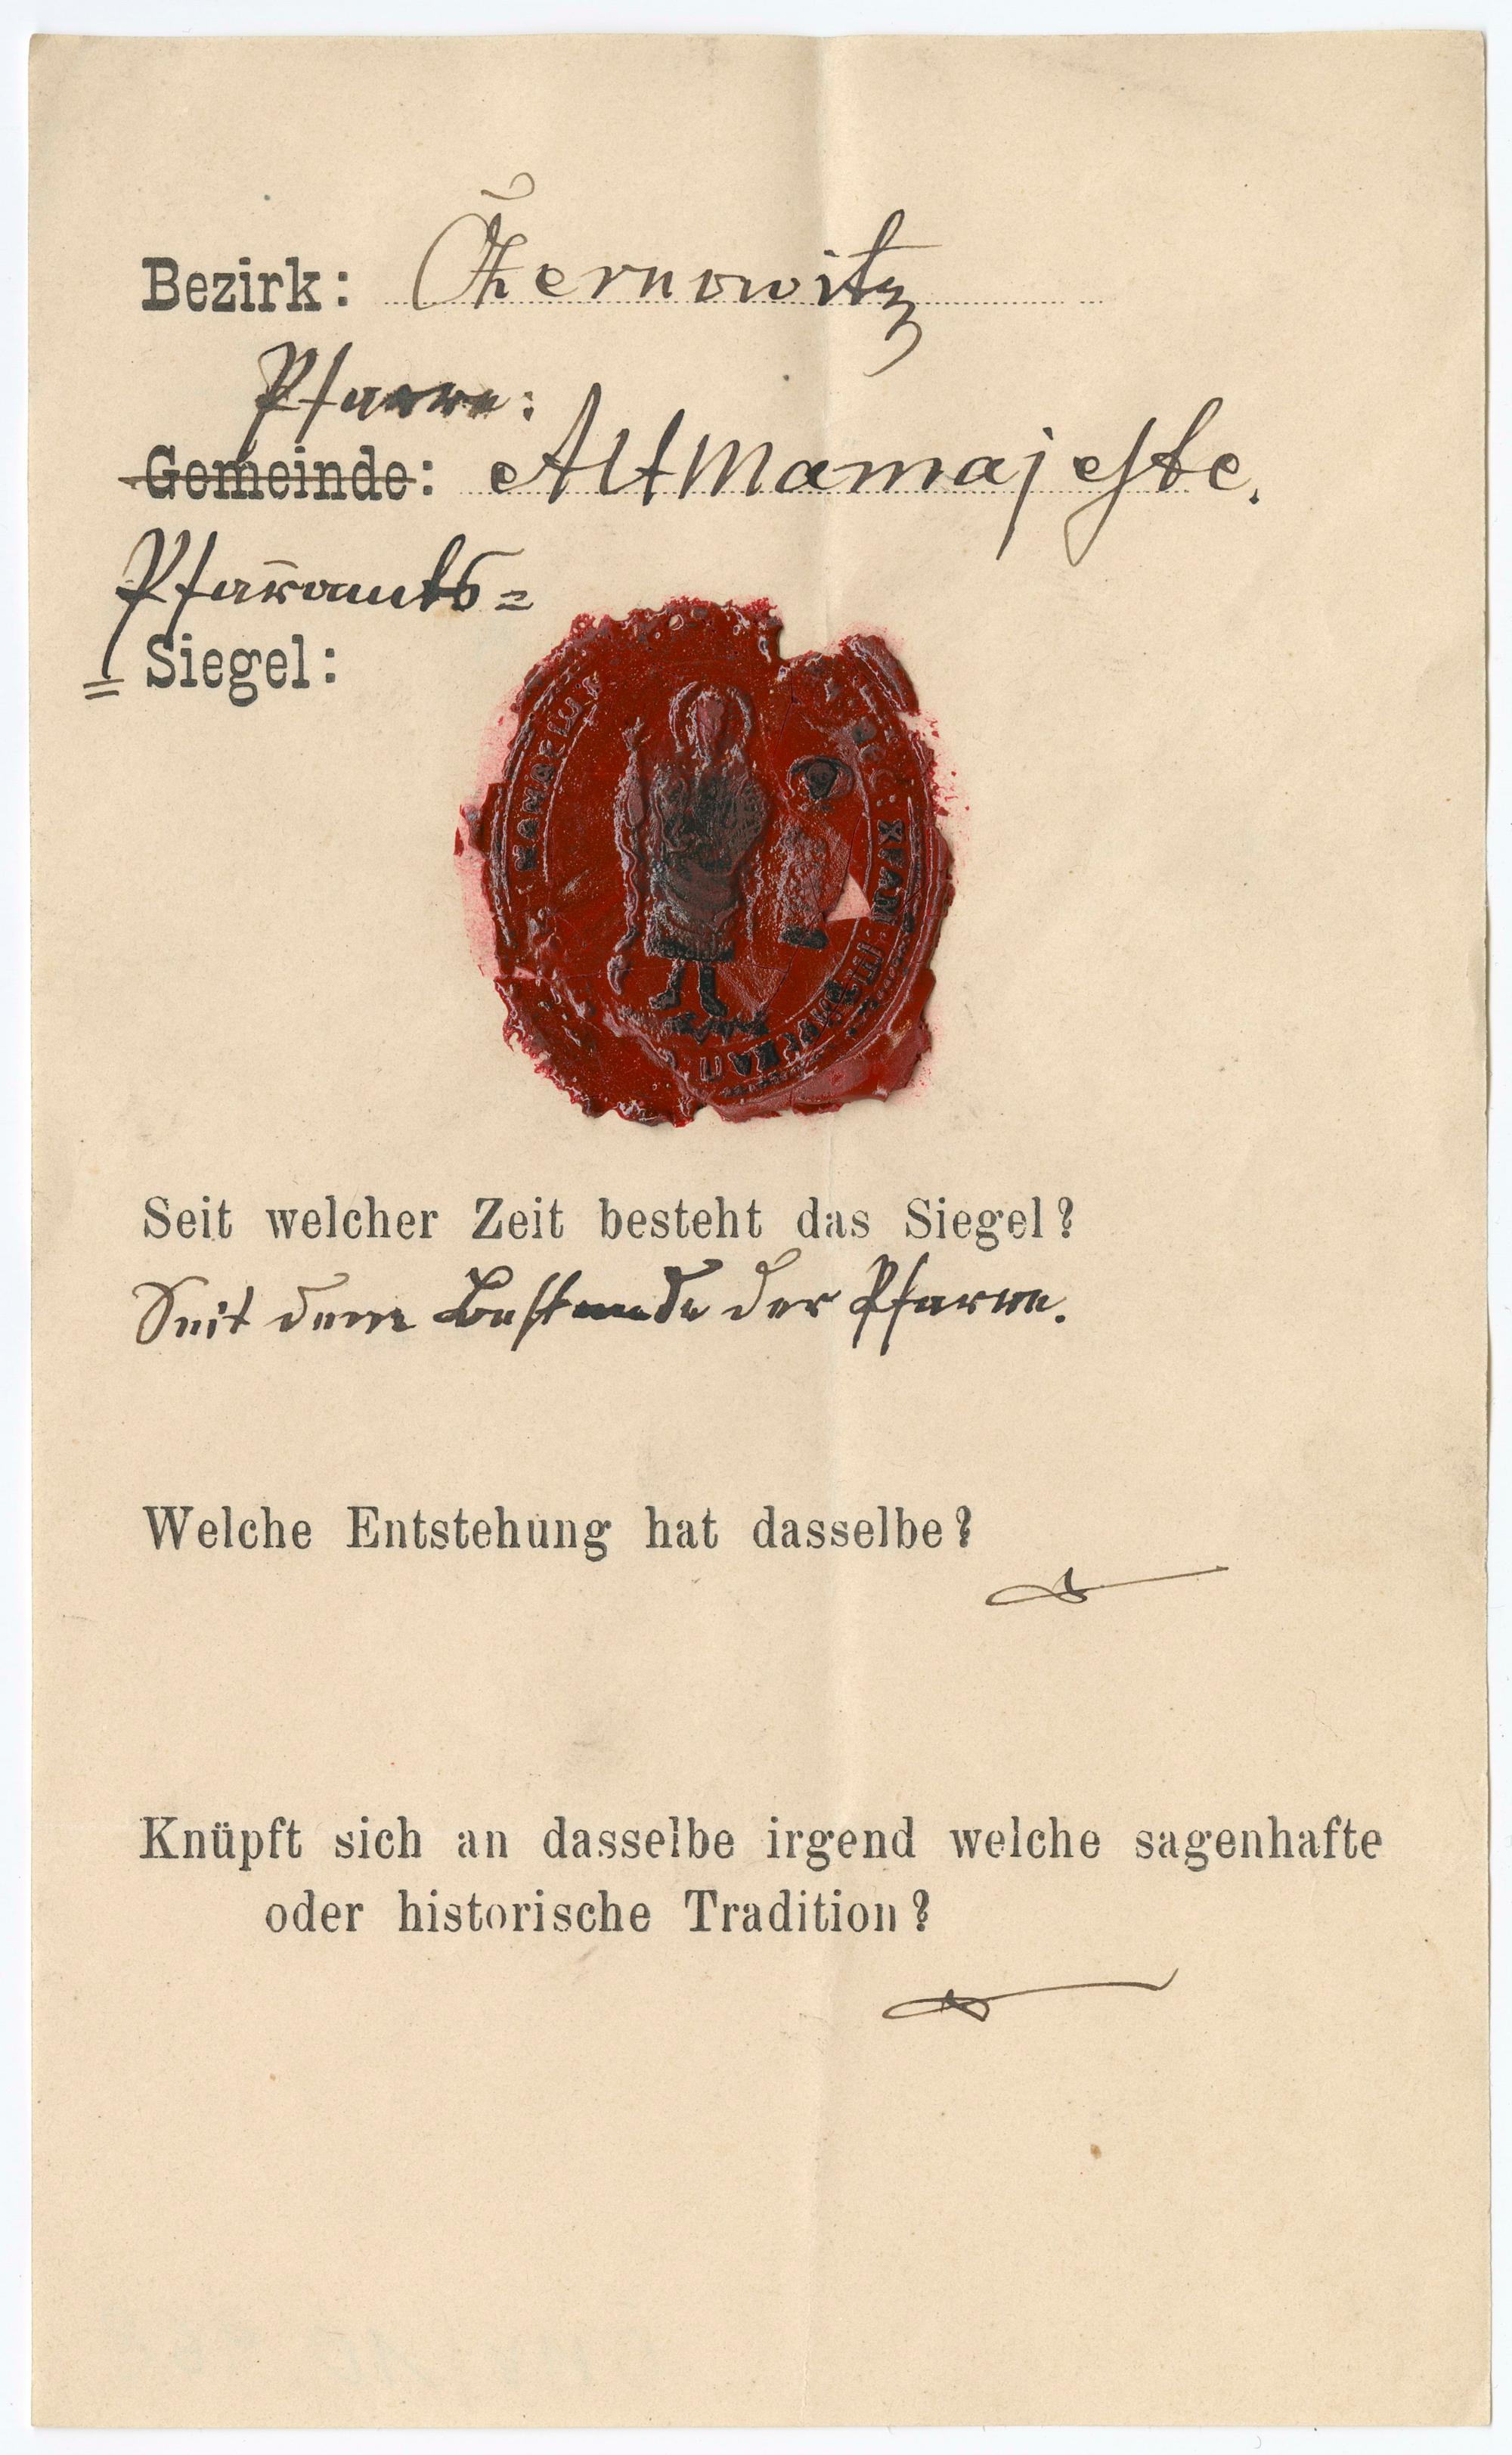 Bezirk: Czernowitz
Pfarre:
Gemeinde: Altmamajestie.
Pfarramts=
Siegel:
Seit welcher Zeit besteht das Siegel?
Seit dem Bestande der Pfarre.
Welche Entstehung hat dasselbe?
Knüpft sich an dasselbe irgend welche sagenhafte
oder historische Tradition?